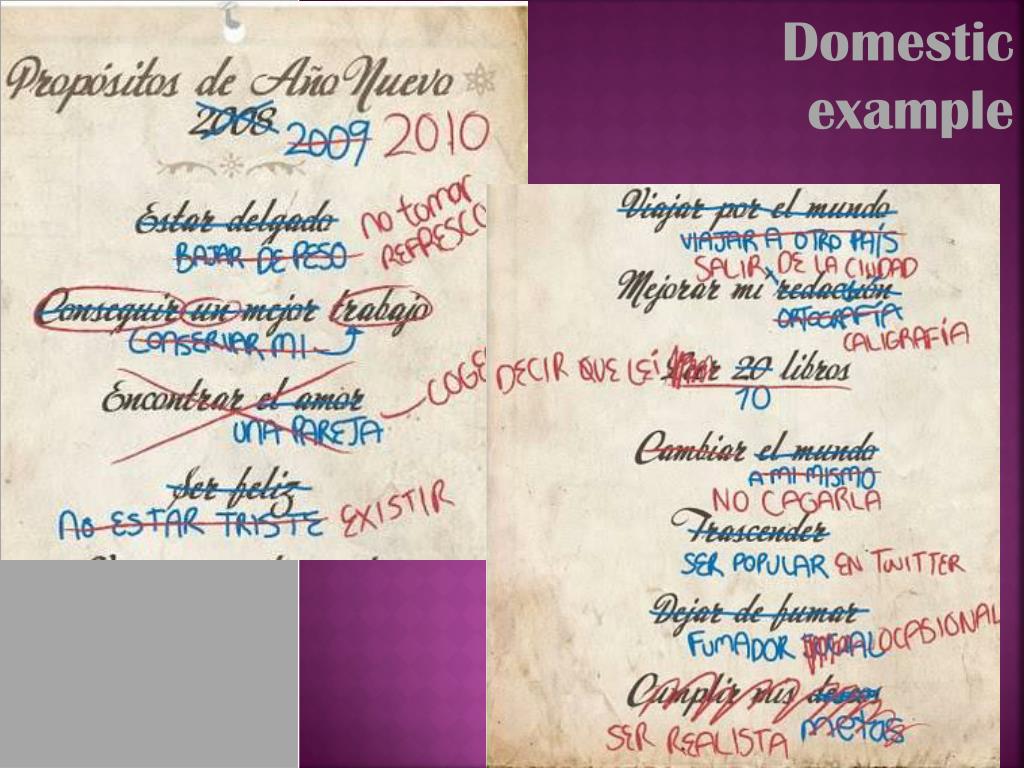 Domestic
example
Propósitos de Año Nuevo
2008 2009 2010
Estar delgado
no tomar
BAJAR DE PESO
REFRESCO
Conseguir un mejor trabajo
CONSERVAR MI
Encontrar el amor
COGE
UNA PAREJA
Ser feliz
NO ESTAR TRISTE EXISTIR
Viajar por el mundo
VIAJAR A OTRO PAÍS
SALIR DE LA CIUDAD
Mejorar mi redacción
ORTOGRAFÍA
CALIGRAFÍA
DECIR QUE LEÍ Leer 20 libros
10
Cambiar el mundo
A MI MISMO
NO CAGARLA
Trascender
SER POPULAR EN TWITTER
Dejar de fumar
FUMADOR SOCIAL OCASIONAL
Cumplir mis deseos
metas
SER REALISTA